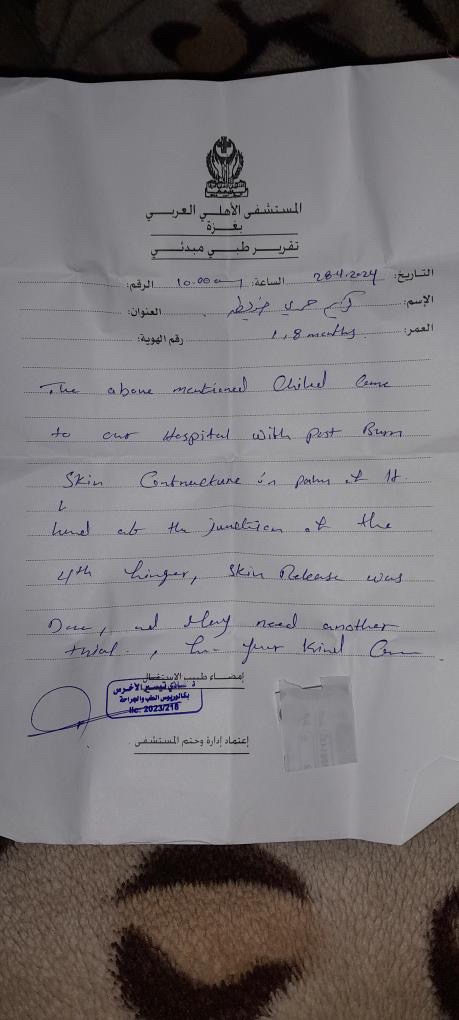 المستشفى الأهلي العربي
بغزة
تقرير طبي مبدئي
التاريخ: 28.4.2024 الساعة: 10.00 am الرقم:
الإسم: كريم حمدي العنوان:
العمر: 1,8 months. رقم الهوية:
The above mentioned Child Came
to our Hospital with post Burn
Skin Contructure in palm of lt.
hand at the junction of the
4th finger, Skin Release was
Done, and May need another
trial., for your Kind Care.
إمضاء طبيب الاستقبال
د. شادي تيسير الأخرس
بكالوريوس الطب والجراحة
lic. 2023/218
إعتماد إدارة وختم المستشفى